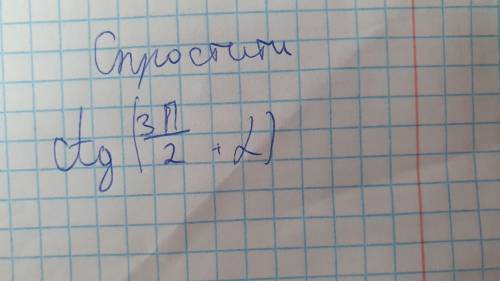 Спростити
ctg (3π/2 + α)